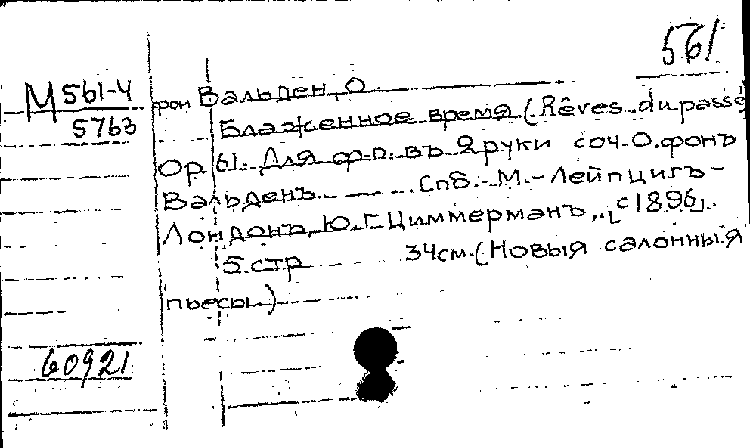 561
М 561-4
5763
фон Вальден, О
Блаженное время (Rêves du passé)
Ор 61. Для ф-п. въ 2 руки соч. О. фонъ
Вальденъ. Спб.-М.-Лейпцигъ-
Лондонъ, Ю. Г. Циммерманъ, [с1896].
5 стр 34см. (Новыя салонныя
пьесы.)
60921